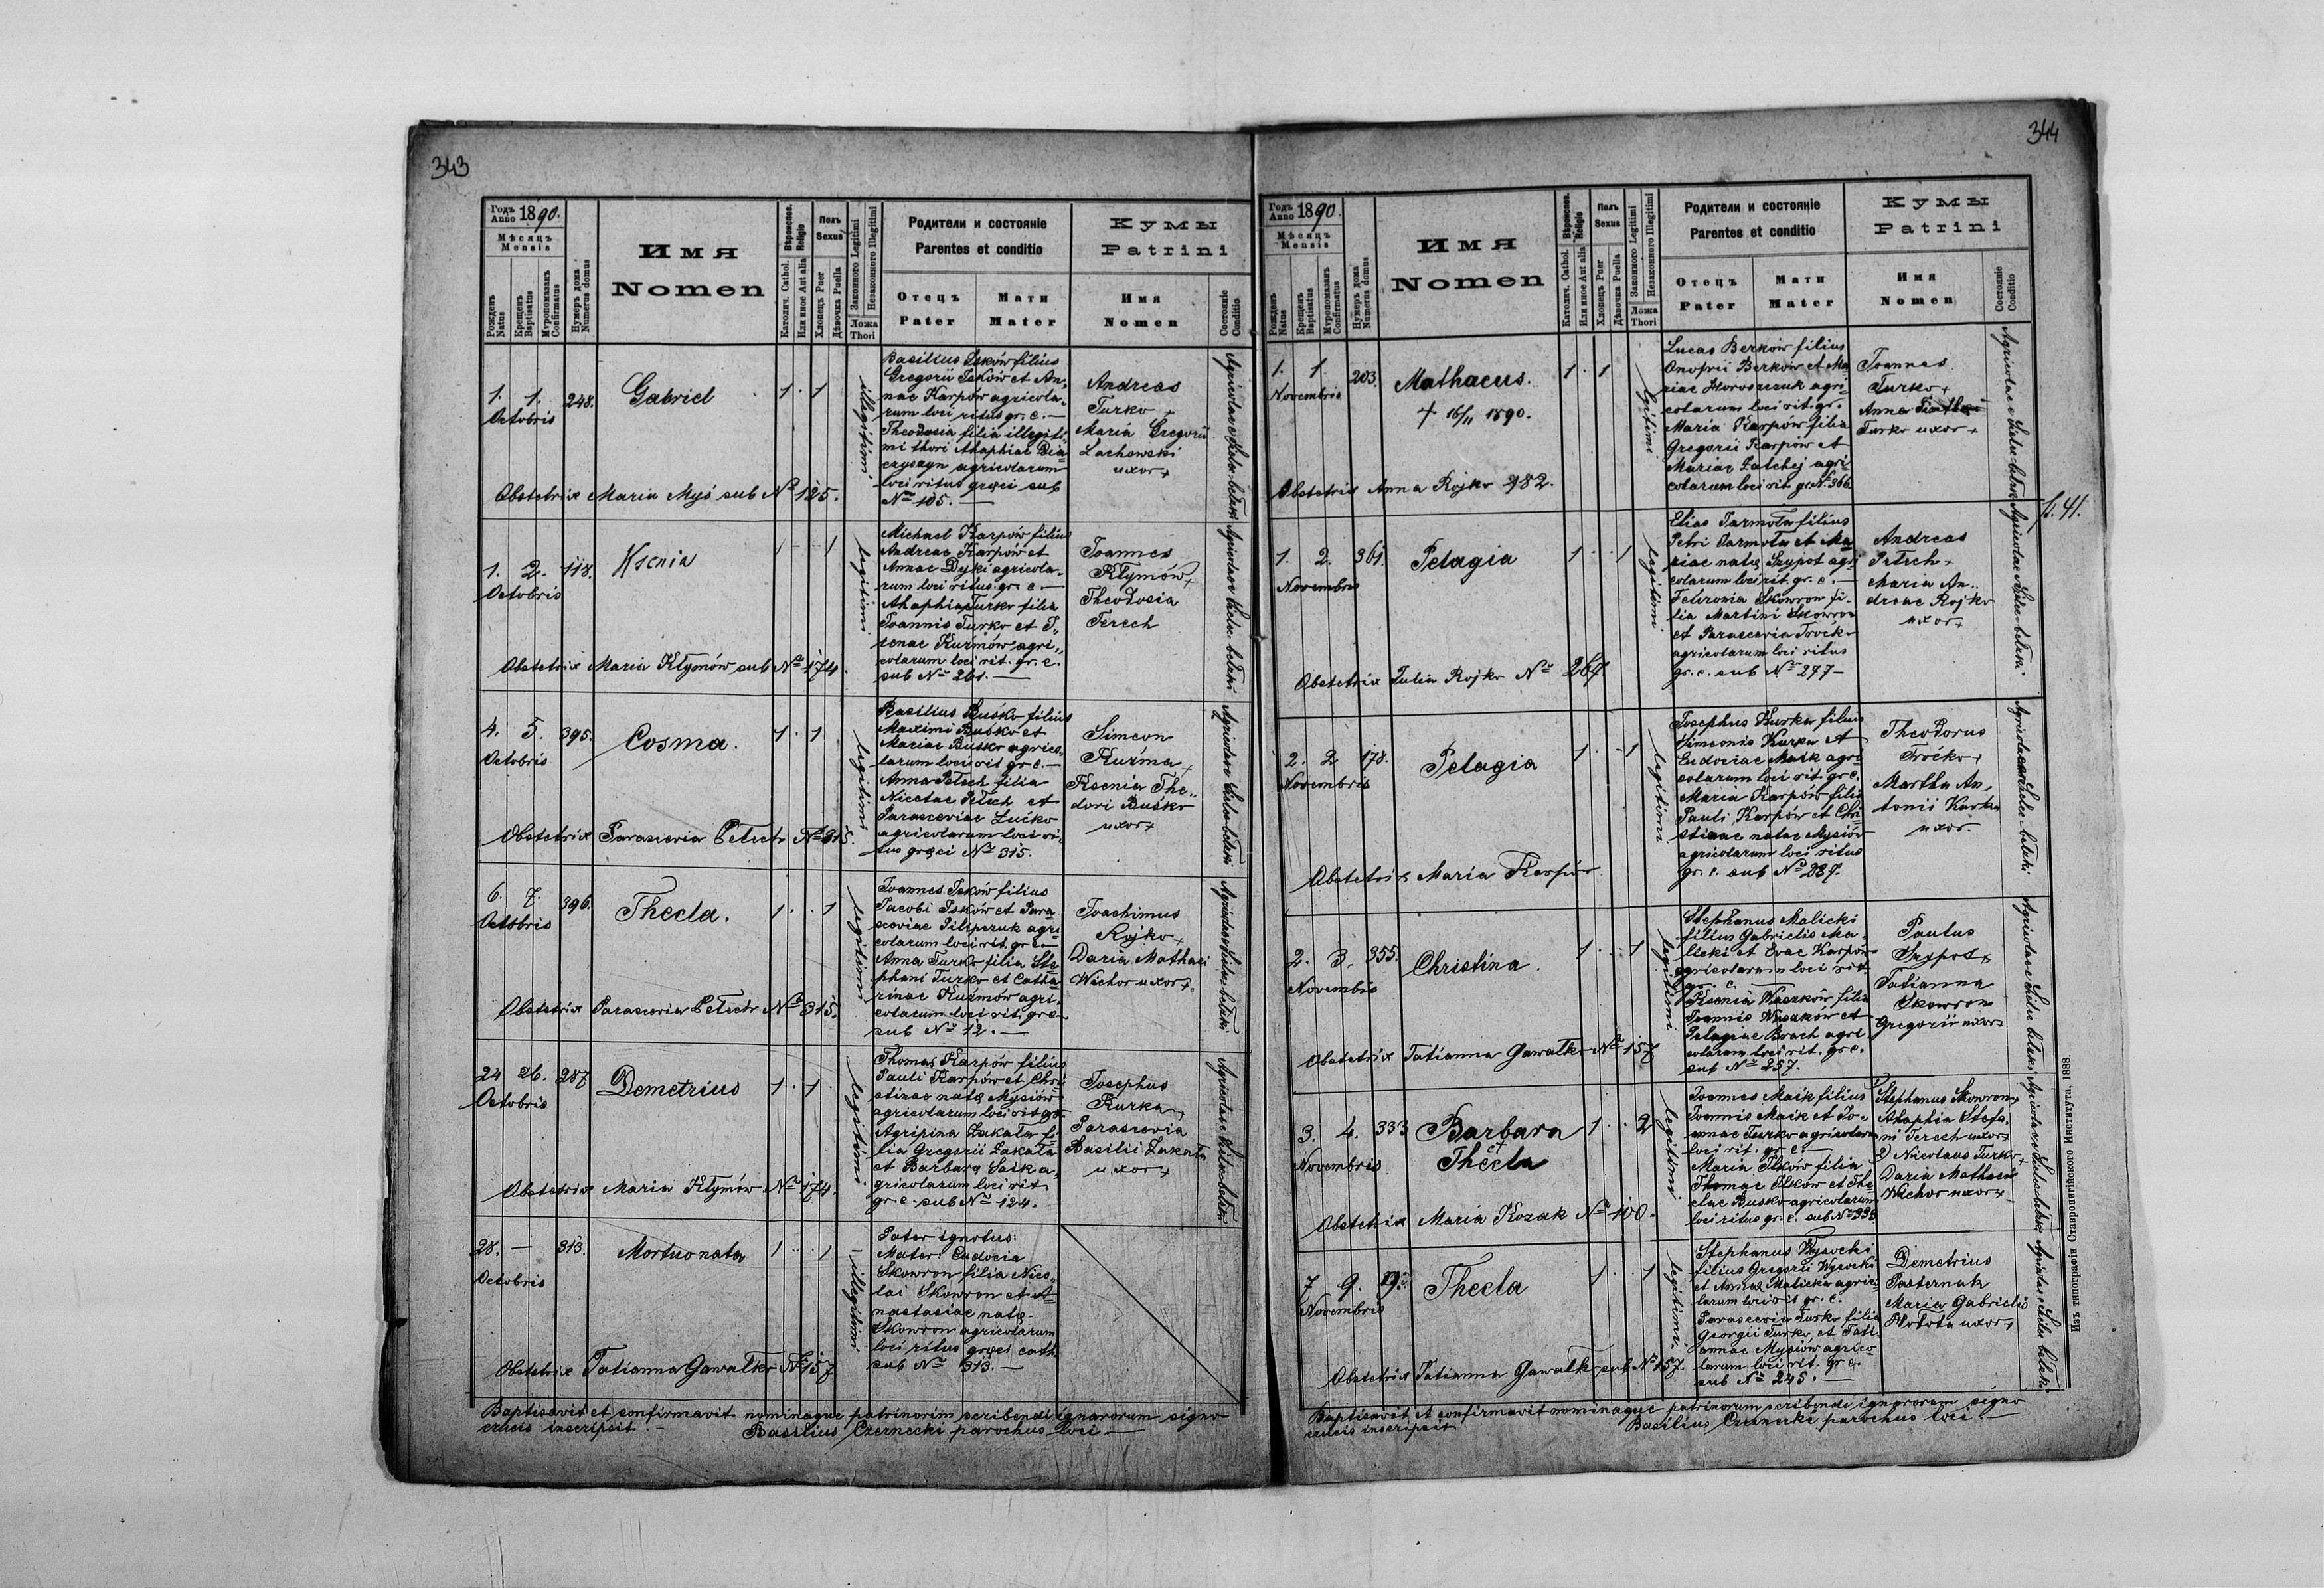 343
Годъ Anno 1890.
Мѣсяцъ Mensis
Рожденъ Natus
Крещенъ Baptisatus
Мѵропомазанъ Confirmatus
Нумеръ дома Numerus domus
Имя
Nomen
Вѣроисповѣд. Religio
Католич. Cathol.
Или иное Aut alia
Полъ Sexus
Хлопецъ Puer
Дѣвочка Puella
Законного Legitimi
Незаконного Illegitimi
Ложа Thori
Родители и состояніе
Parentes et conditio
Отецъ
Pater
Мати
Mater
Кумы
Patrini
Имя
Nomen
Состояніе Conditio
1. 1. 248. Gabriel 1 · 1
Octobris
illegitimi
Basilius Iśków filius
Gregorii Iśków et An„
nae Karpów agricola„
rum loci ritus gr. c. —
Theodosia filia illegiti„
mi thori Ahaphiae Dia„
czyszyn agricolarum
loci ritus graeci sub
No 105. —
Andreas
Turko +
Maria Gregorii
Lachowski
uxor +
Obstetrix Maria Myś sub No 125.
1. 2. 118. Ksenia 1 · · 1
Octobris
legitimi
Michael Karpów filius
Andreae Karpów et
Annae Dyki agricola„
rum loci ritus gr. c. —
Ahaphia Turko filia
Joannis Turko et I„
renae Kuźmów agri„
colarum loci rit. gr. c.
sub No 261. —
Joannes
Kłymów +
Theodosia
Terech
Obstetrix Maria Kłymów sub No 174.
4. 5. 395. Cosma. 1 · 1
Octobris
legitimi
Basilius Buśko filius
Maximi Buśko et
Mariae Busko agrico„
larum loci rit gr c. —
Anna Petech filia
Nicetae Petech et
Parasceviae Łućko
agricolarum loci ri„
tus graeci No 315.
Simeon
Kuźma +
Ksenia The„
dori Buśko
uxor +
Obstetrix Parascevia Petech No 315.
6. 7. 396. Thecla. 1 · · 1
Octobris
legitimi
Joannes Iśków filius
Jacobi Iśków et Para„
sceviae Pilipczuk agri„
colarum loci rit. gr c. —
Anna Turko filia Ste„
phani Turko et Catha„
rinae Kuźmów agri„
colarum loci rit. gr c.
sub No 12. —
Joachimus
Rojko +
Daria Mathaei
Wichor uxor +
Obstetrix Parascevia Petech No 315.
24 26. 287 Demetrius 1 · 1
Octobris
legitimi
Thomas Karpów filius
Pauli Karpów et Chri„
stinae natae Mysiów
agricolarum loci rit gr
Agripina Zakała fi„
lia Gregorii Zakała
et Barbara Saik a„
gricolarum loci rit
gr. c. sub No 124.
Josephus
Kurka +
Parascevia
Basilii Zakała
uxor +
Obstetrix Maria Kłymów No 174.
28. — 313. Mortuo nata 1 · · 1
Octobris
illegitimi
Pater ignotus.
Mater: Eudocia
Skowron filia Nico„
lai Skowron et A„
nastasiae natae
Skowron agricolarum
loci ritus graeci cath.
sub No 313. —
Obstetrix Tatianna Gawałko No 157
Baptisavit et confirmavit nominaque patrinorum scribendi ignarorum signo
crucis inscripsit. — Basilius Czernecki parochus loci —
344
Годъ Anno 1890.
Мѣсяцъ Mensis
Рожденъ Natus
Крещенъ Baptisatus
Мѵропомазанъ Confirmatus
Нумеръ дома Numerus domus
Имя
Nomen
Вѣроисповѣд. Religio
Католич. Cathol.
Или иное Aut alia
Полъ Sexus
Хлопецъ Puer
Дѣвочка Puella
Законного Legitimi
Незаконного Illegitimi
Ложа Thori
Родители и состояніе
Parentes et conditio
Отецъ
Pater
Мати
Mater
Кумы
Patrini
Имя
Nomen
Состояніе Conditio
1. 1 203. Mathaeus. 1 · 1
Novembris
+ 16/11 1890.
legitimi
Lucas Berków filius
Onofrii Berków et Ma„
riae Horoszczuk agri„
colarum loci rit. gr.
Maria Karpów filia
Gregorii Karpów et
Mariae Łatchej agri„
colarum loci rit. gr. No 366.
Joannes
Turko +
Anna
Turko uxor +
Obstetrix Anna Rojko 282.
f. 41.
1. 2. 361. Pelagia 1 · · 1
Novembris
legitimi
Elias Jarmoła filius
Petri Jarmoła et Ma„
riae natae Szypot agri„
colarum loci rit. gr. c. —
Fehronia Skowron fi„
lia Martini Skowron
et Parascevia Troćko
agricolarum loci ritus
gr. c. sub No 297 —
Andreas
Petech +
Maria An„
dreae Rojko
uxor +
Obstetrix Julia Rojko No 269
2. 2 178. Pelagia 1 · · 1
Novembris
legitimi
Josephus Kurka filius
Simeonis Kurka et
Eudociae Maik agri„
colarum loci rit. gr c.
Maria Karpów filia
Pauli Karpów et Chri„
stinae natae Mysiów
agricolarum loci ritus
gr. c. sub No 287.
Theodorus
Troćko +
Martha An„
tonii Kurka
uxor.
Obstetrix Maria Karpów
2. 3. 355. Christina. 1 · · 1
Novembris
legitimi
Stephanus Malicki
filius Gabrielis Ma„
licki et Evae Karpów
agricolarum loci rit.
gr. c. —
Ksenia Waszków filia
Joannis Waszków et
Pelagiae Brach agri„
colarum loci rit. gr c.
sub No 257.
Paulus
Szypot +
Tatianna
Skowron
Gregorii uxor +
Obstetrix Tatianna Gawałko No 157
3. 4. 333 Barbara 1 · · 2
Novembris
Thecla
legitimi
Joannes Maik filius
Joannis Maik et Jo„
annae Turko agricolarum
loci rit. gr c. —
Maria Iśków filia
Thomae Iśków et The„
clae Busko agricolarum
loci ritus gr. c. sub No 333
Stephanus Skowron +
Ahaphia Stepha„
ni Terech uxor +
2) Nicolaus Turko +
Daria Mathaei
Wichor uxor +
Obstetrix Maria Kozak No 100.
7 9. Thecla 1 · · 1
Novembris
legitimi.
Stephanus Wysocki
filius Gregorii Wysocki
et Annae Malicka agrico„
larum loci rit gr. c.
Parascevia Turko filia
Georgii Turko et Tati„
annae Mysiów agrico„
larum loci rit. gr c.
sub No 245. —
Demetrius
Pasternak
Maria Gabrielis
uxor +
Obstetrix Tatianna Gawałko sub No 157.
Baptisavit et confirmavit nominaque patrinorum scribendi ignarorum signo
crucis inscripsit Basilius Czernecki parochus loci. —
Изъ типографіи Ставропигійского Института, 1888.